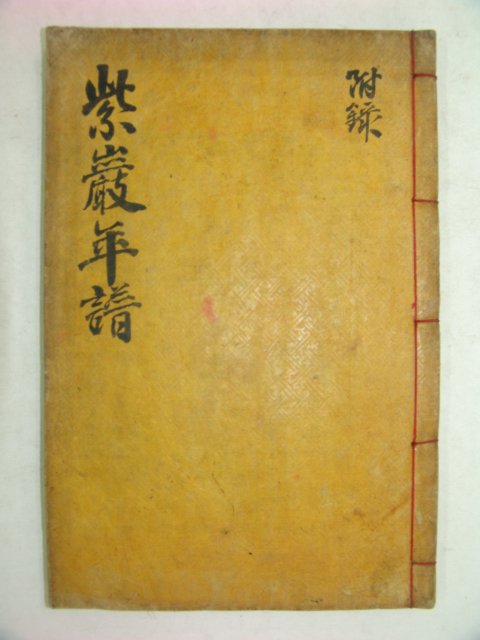 紫巖年譜
附錄